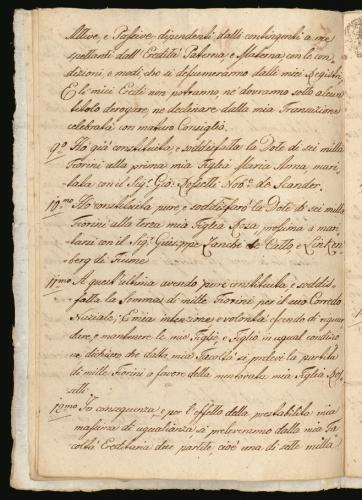 Attive, e Passive dipendenti dalli contingenti a me
spettanti dall' Eredità Paterna, e Materna con le con
dizioni, e modi, che si desumeranno dalli miei Registri
E li miei Eredi non potranno, ne dovranno sotto alcun
titolo derogire, ne declinare dalla mia Transazione
celebrata con maturo Consiglio.
9º Hò già constituita, e soddisfatta la Dote di sei mille
Fiorini alla prima mia Figlia Maria Anna mari-
tata con il Sigr Gio: Rosetti Nob: de Scander.
10mo Hò constituita pure, e soddisfarò la Dote di sei mille
Fiorini alla terza mia Figlia Rosa prossima a mari-
tarsi con il Sigr Giuseppe Zanchi de Catto, e Linken-
berg di Fiume
11mo A quest' ultima avendo pure constituita e soddis-
fatta la Somma di mille Fiorini per il suo Corredo
Nuziale; E mia intenzione, e volontà essendo di riguar
dare, e mantenere le mie Figlie, e Figli in ugual condizio
ne, dichiaro che dalla mia Facoltà si prelevi la partita
di mille Fiorini a favore della mentovata mia Figlia Ros-
setti.
12mo In consequenza, e per l'effetto della prestabilita mia
massima di uguaglianza si preleveranno dalla mia Fa
coltà Ereditaria due partite, cioè una di sette milla